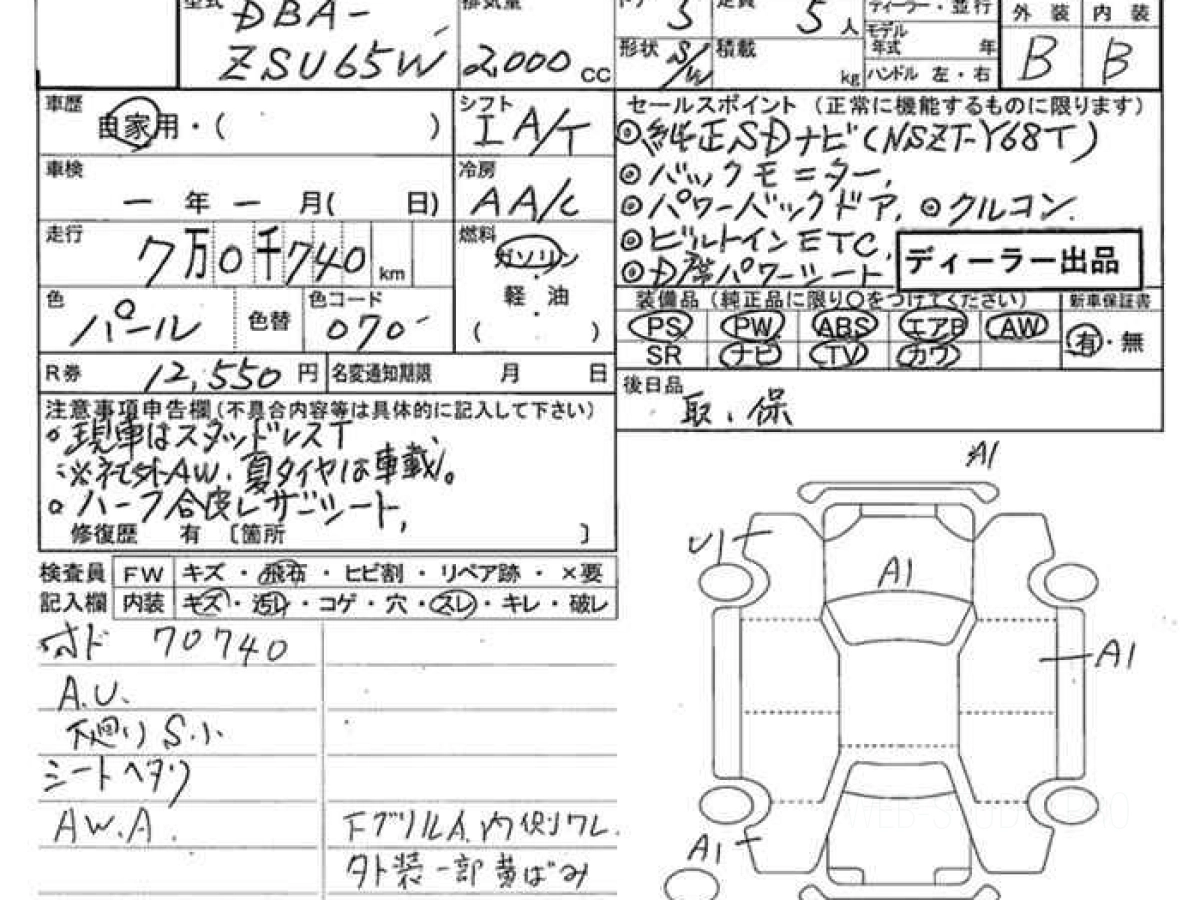 型式 DBA-
ZSU65W
排気量
2,000 cc
ドア 5
定員 5人
形状 S/W
積載 kg
ディーラー・並行
モデル年式 年
ハンドル 左・右
外装 内装
B B
車歴 自家用・( )
シフト I A/T
車検 一年一月( 日)
冷房 AA/C
走行 7万0千740 km
燃料 ガソリン
・
軽油
・
( )
色 パール
色替
色コード 070
R券 12,550円
名変通知期限 月 日
セールスポイント(正常に機能するものに限ります)
◎純正SDナビ(NSZT-Y68T)
◎バックモニター,
◎パワーバックドア, ◎クルコン.
◎ビルトインETC,
◎D席パワーシート,
ディーラー出品
装備品(純正品に限り○をつけてください)
新車保証書
PS PW ABS エアB AW
SR ナビ TV カワ
有・無
後日品
取、保
注意事項申告欄(不具合内容等は具体的に記入して下さい)
○現車はスタッドレスT
※社外AW、夏タイヤは車載。
○ハーフ合皮レザーシート,
修復歴 有 〔箇所 〕
検査員 FW キズ・飛石・ヒビ割・リペア跡・×要
記入欄 内装 キズ・汚レ・コゲ・穴・スレ・キレ・破レ
オド 70740
A.U.
下廻りS.小
シートヘタリ
AW.A.
下グリルA.内側ワレ.
外装一部黄ばみ
A1
U1
A1
A1
A1